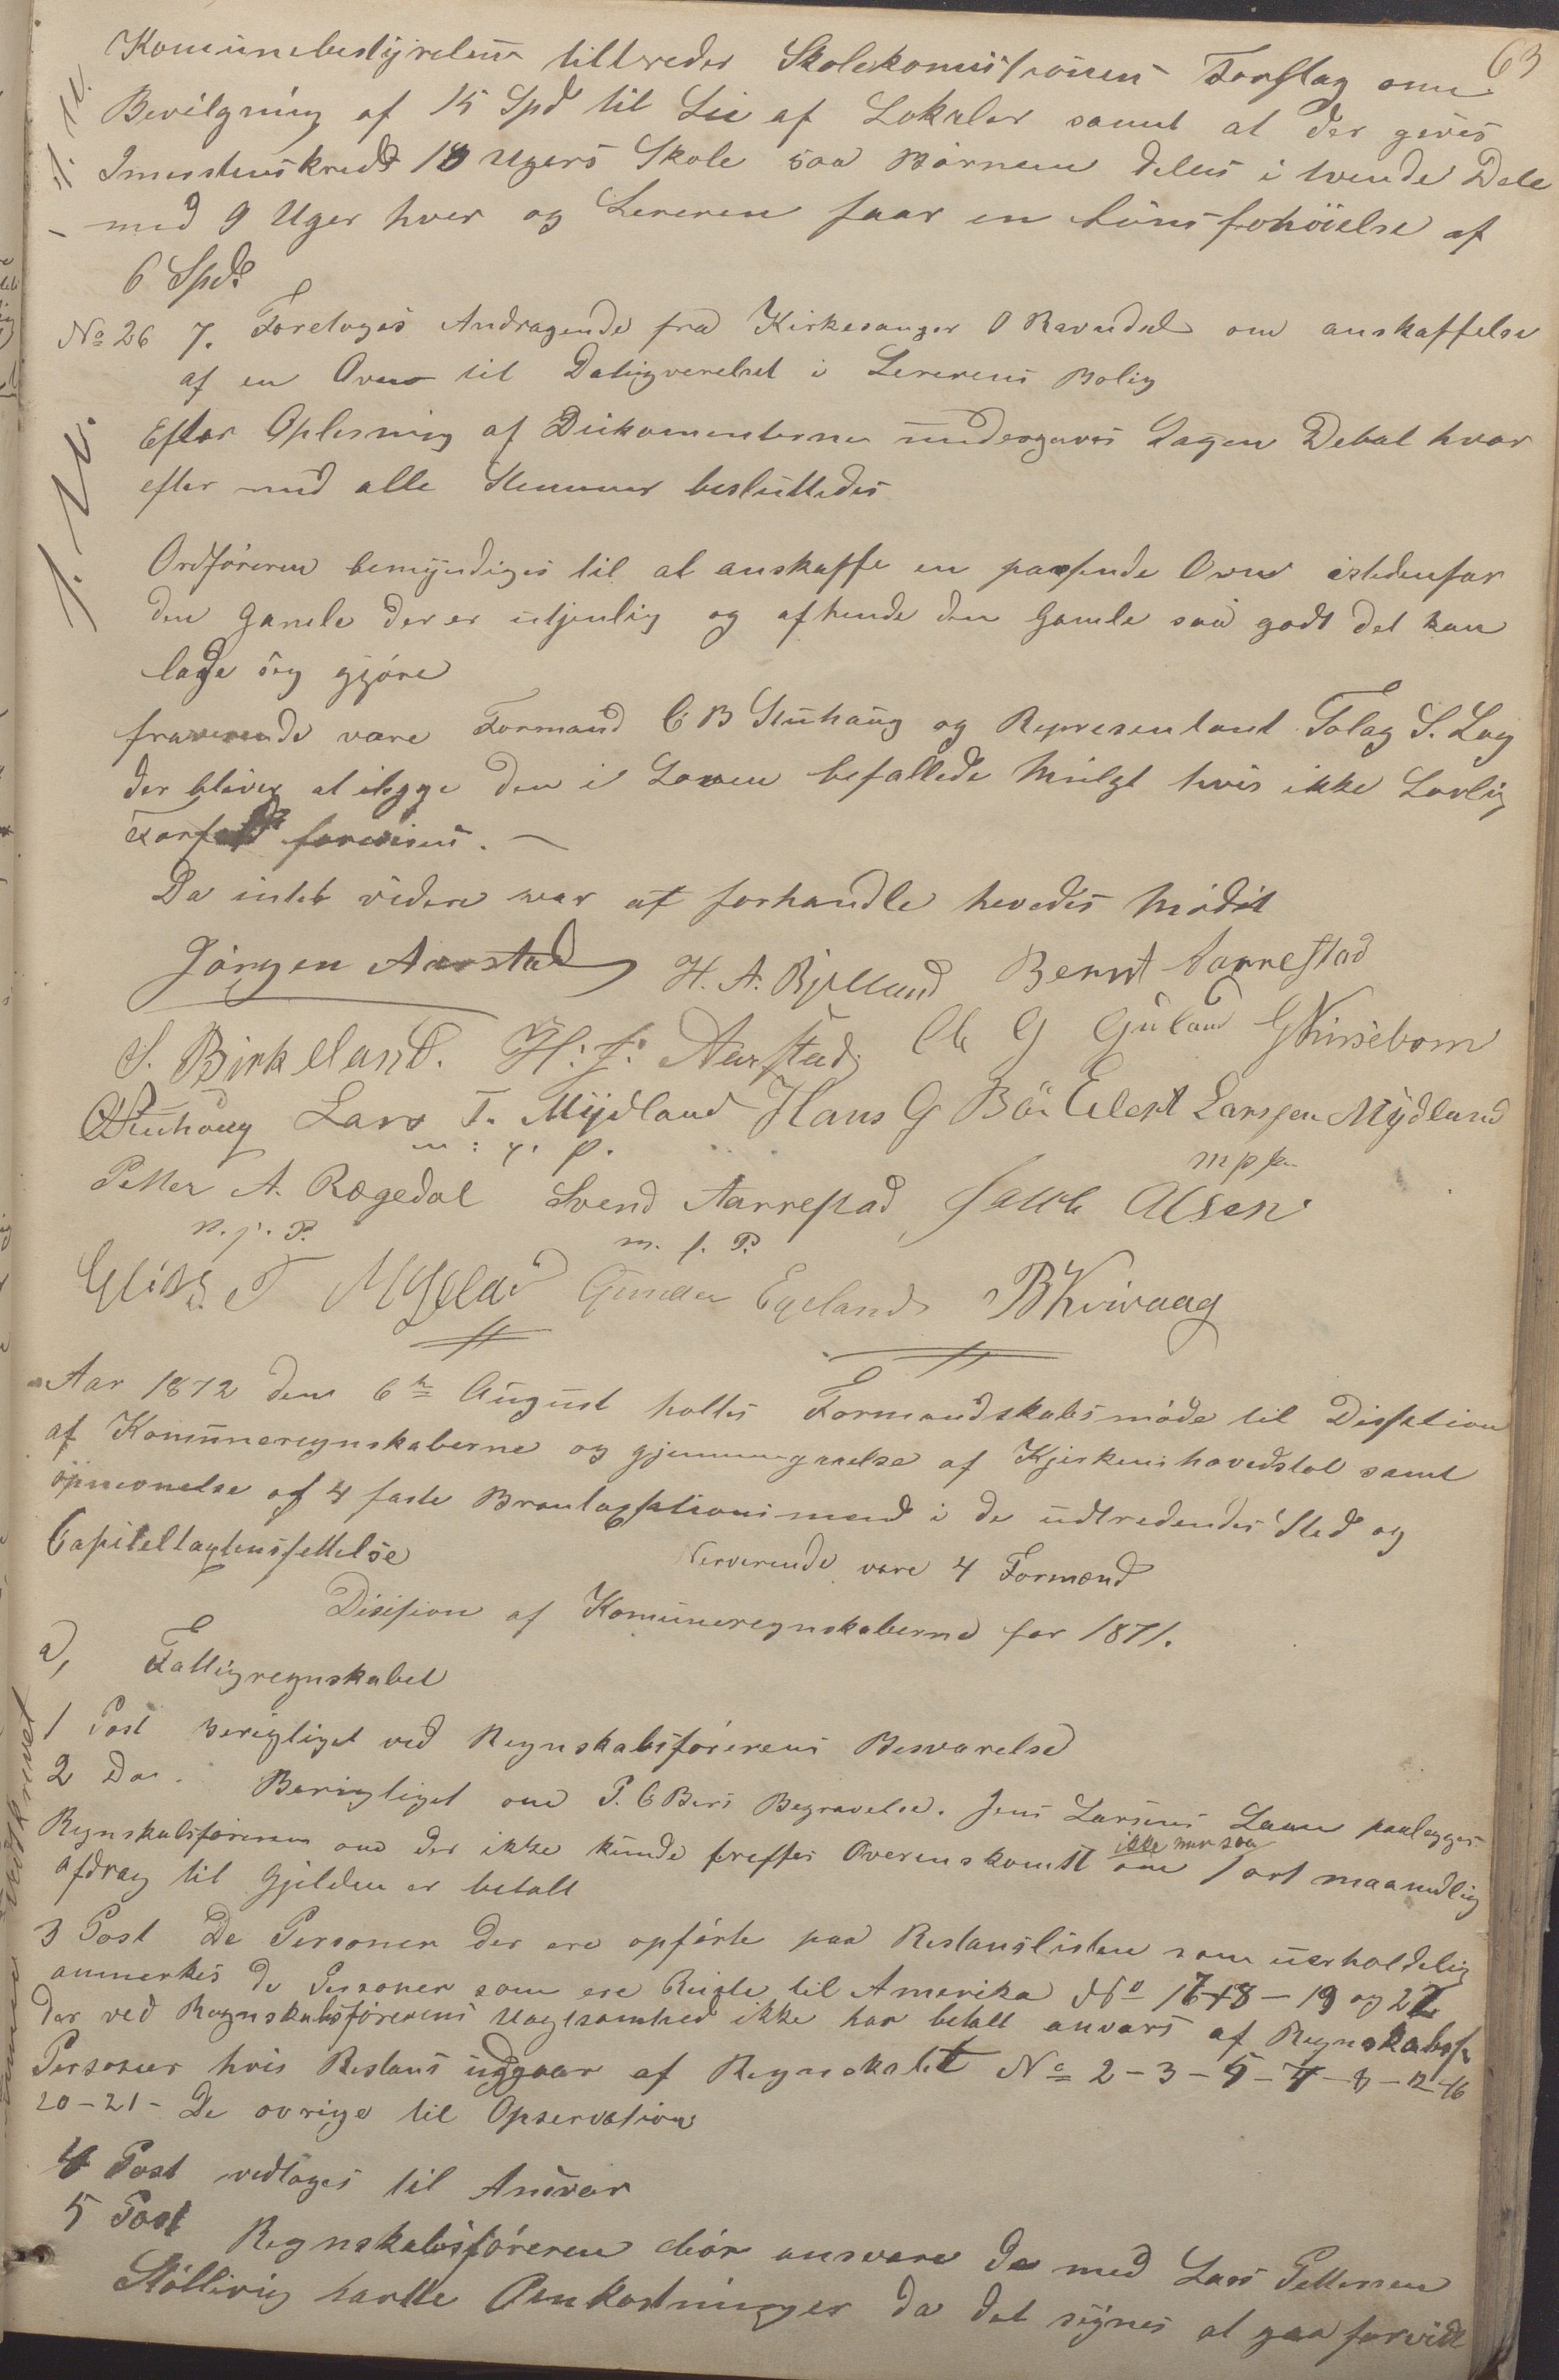 63
Komunebestyrelsen tiltreder Skolekomissionens Forslag om
Bevilgning af 15 Spd til Leie af Lokaler samt at der gives
Immerstenskreds 18 Ugers Skole saa Børnene deles i tvende Dele
med 9 Uger hver og Lereren faar en Lønsforhøielse af
6 Spd
No 26 7. Foretoges Andragende fra Kirkesanger O Ravndal om anskaffelse
af en Ovn til Dagligverelset i Lererens Bolig
Efter Oplesning af Dukomenterne undergaves Sagen Debat hvor
efter med alle Stemmer besluttedes
Ordføreren bemyndiges til at anskaffe en passende Ovn istedenfor
den Gamle der er utjenlig og afhende den Gamle saa godt det kan
lade sig gjøre
fraverende vare Formand C B Stuhaug og Representant Tolag S. Log
der bliver at ilegge den i Loven befallede Mulgt hvis ikke Lovlig
Forfald forevises. —
Da intet videre var at forhandle hevedes Mødet
Jörgen Aarstad H. A. Bjelland Bernt Aarrestad
S. Birkeland. H. J. Aarstad G Guland G Kirsebom
Stuhoug Lars T. Mydland Hans G Bö Eilert Larssen Mydland
m : p. p. m p p
Petter A. Rægedal Svend Aarrestad Jakob Olsen
m. p. P. m. p. P.
T Mydland Gunder Egeland B Kvivaag
Aar 1872 den 6te August holtes Formandskabsmøde til Disistion
af Komuneregnskaberne og gjennemgaaelse af Kjirkens hovedstol samt
opneonelse af 4 faste Brantagstionsmend i de udtredendes Sted og
Capiteltagtensfettelse Nerverende vare 4 Formend
Disission af Komuneregnskaberne for 1871.
a, Fattigregnskabet
1 Post Berigtiget ved Regnskabsførerens Besvarelse
2 Do. Berigtiget om P. C Bers Begravelse. Jens Larsens Laan paalegges
Regnskabsføreren om der ikke kunde treffes Overenskomst om 1 ort maanedlig
ikke mer saa
Afdrag til Gjelden er betalt
3 Post De Personer der ere opførte paa Restanslisten som uerholdelig
anmerkes de Personer som ere Reiste til Amerika No 17-18-19 og 22
der ved Regnskabsførerens Uagtsomhed ikke har betalt anvars af Regnskabsf
Personer hvis Restans udgaar af Regnskabet No 2-3-5-7-8-12-16
20-21- De ovrige til Opservation
4 Post vedtoges til Ansvar
5 Post Regnskabsføreren bør ansvare de med Lars Pettersen
Stölliviig havtte Omkostninger da det synes at gaa forvidt